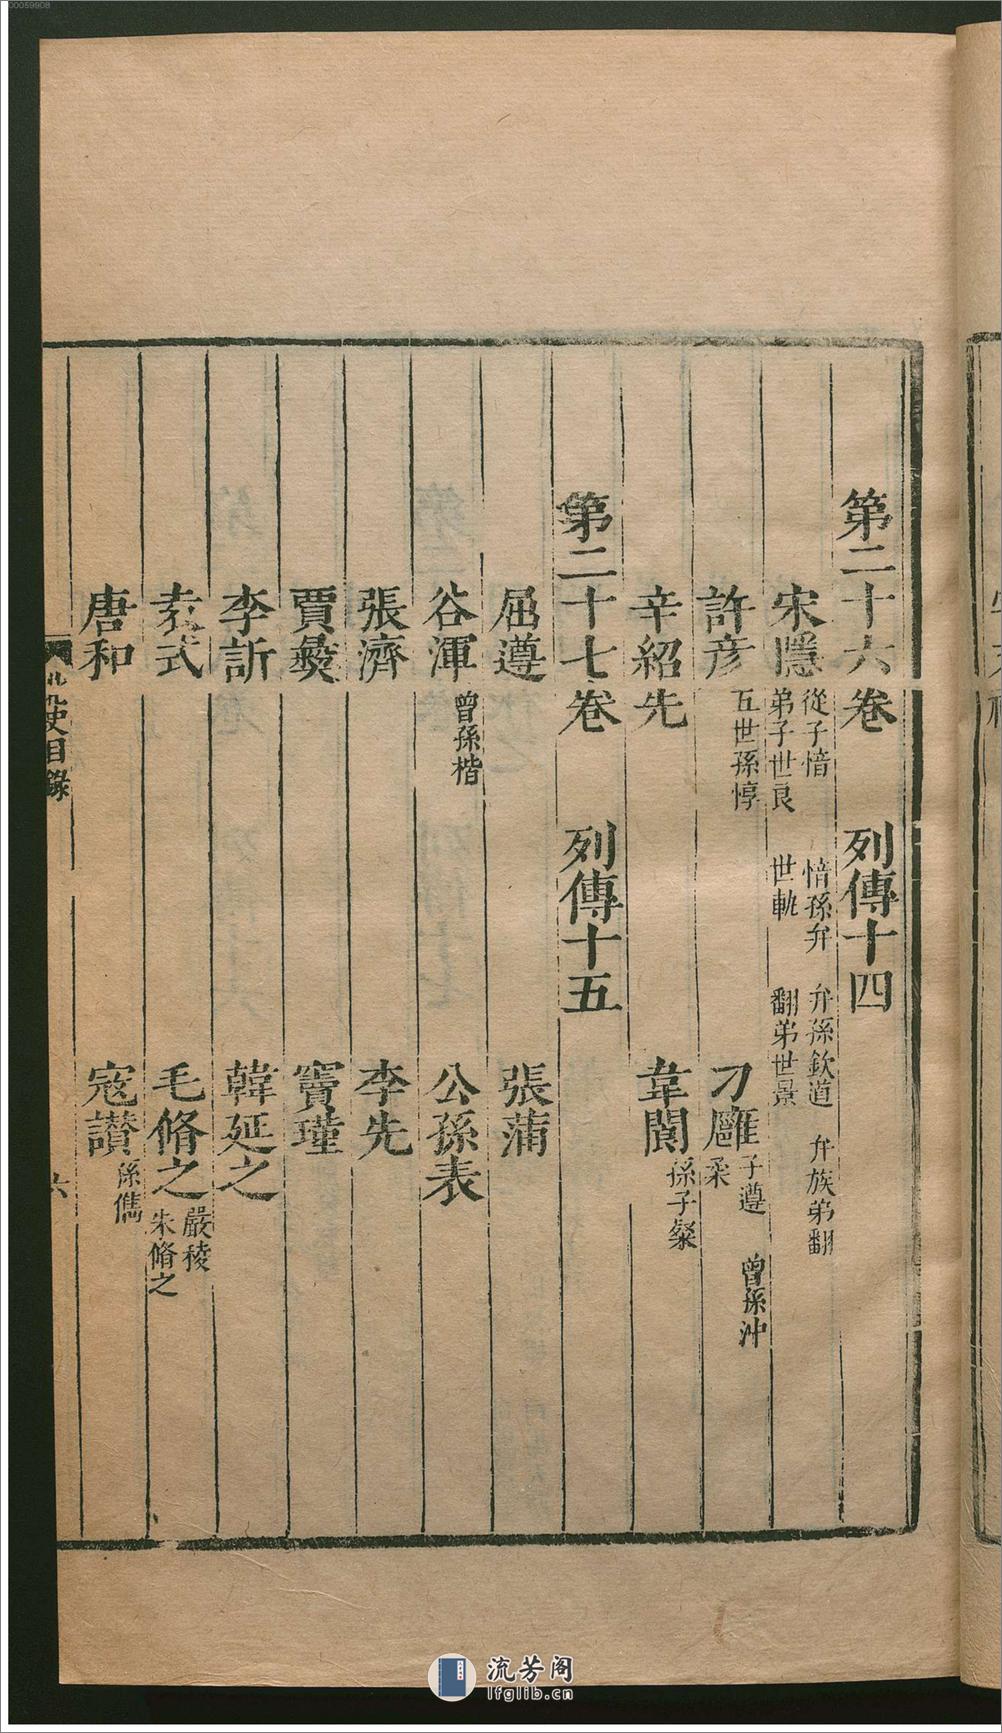 第二十六卷 列傳十四
宋隱 從子愔 愔孫弁 弁孫欽道 弁族弟翻
弟子世良 世軌 翻弟世景
許彦 五世孫惇 刁雍 子遵 曾孫沖
柔
辛紹先 韋閬 孫子粲
第二十七卷 列傳十五
屈遵 張蒲
谷渾 曾孫楷 公孫表
張濟 李先
賈彝 竇瑾
李訢 韓延之
袁式 毛脩之 嚴稜
朱脩之
唐和 寇讃 孫儁
北史目錄 六
流芳阁
lfglib.cn
00059908